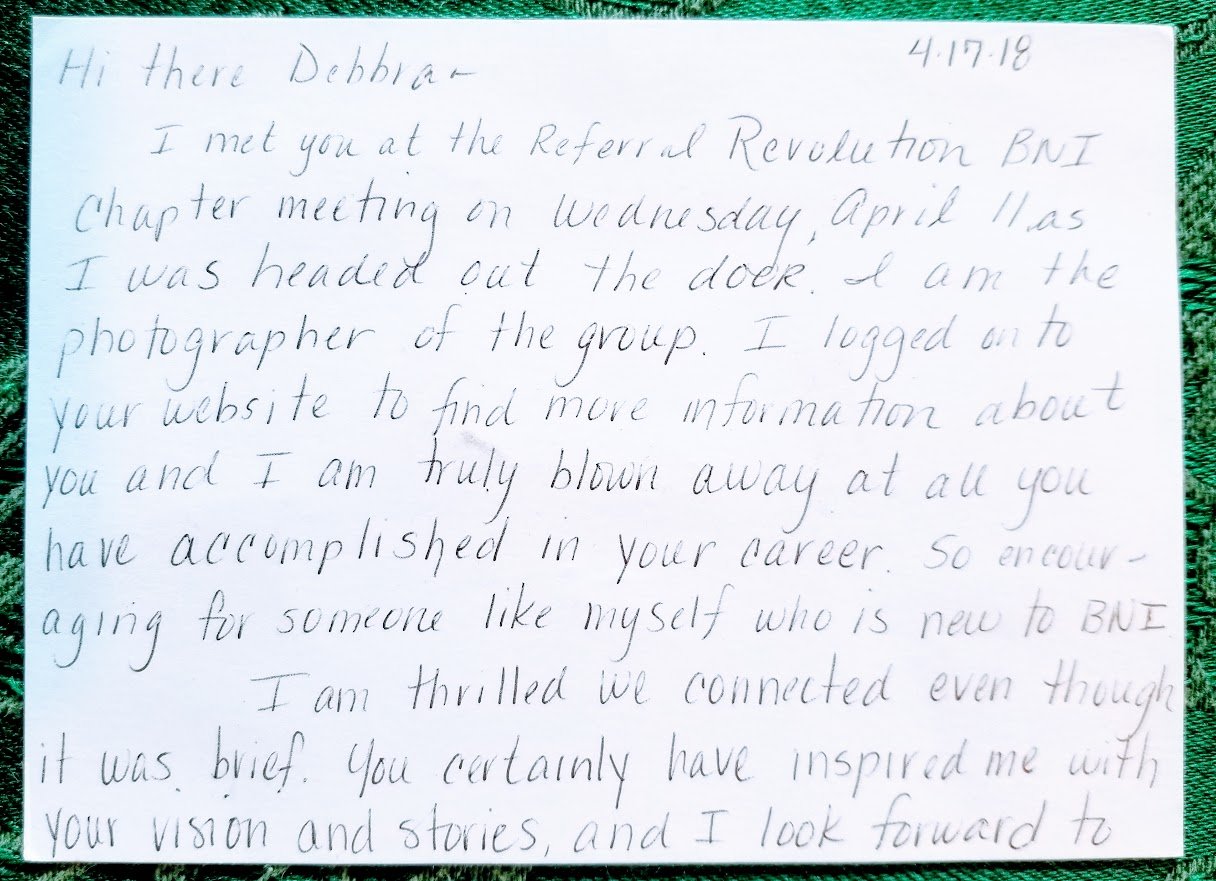 4.17.18
Hi there Debbra-
I met you at the Referral Revolution BNI
Chapter meeting on Wednesday, April 11, as
I was headed out the door. I am the
photographer of the group. I logged on to
your website to find more information about
you and I am truly blown away at all you
have accomplished in your career. So encour-
aging for someone like myself who is new to BNI.
I am thrilled we connected even though
it was brief. You certainly have inspired me with
your vision and stories, and I look forward to